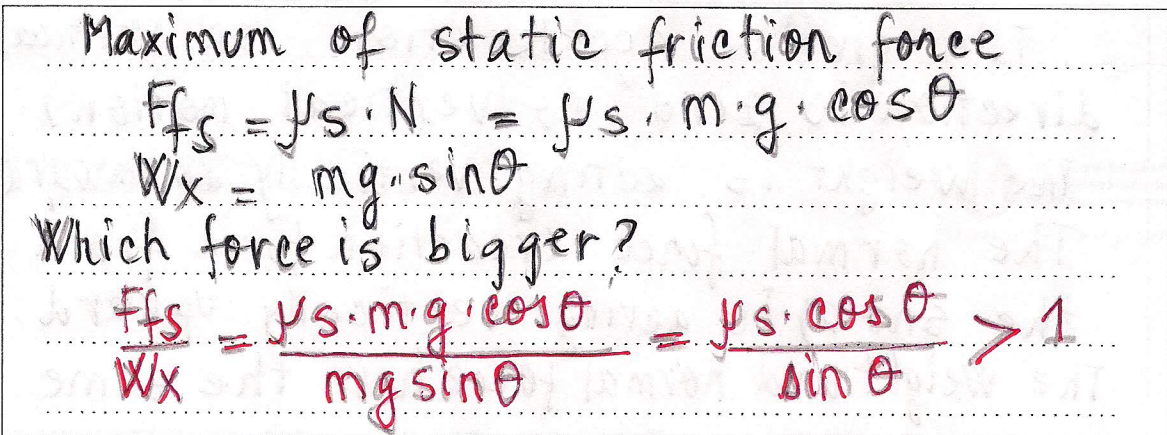 Maximum of static friction force
Ffs = μs · N = μs · m · g · cosθ
Wx = mg · sinθ
Which force is bigger?
Ffs/Wx = μs · m · g · cosθ/mg sinθ = μs · cosθ/sinθ > 1